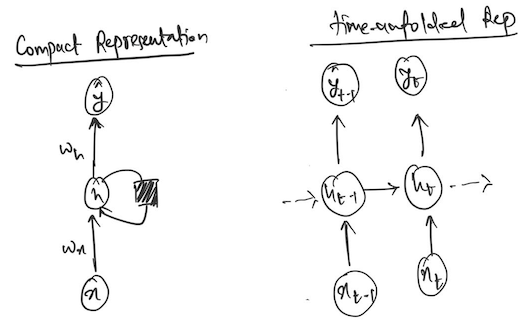 Compact Representation
ŷ
Wh
h
Wx
x
time-unfolded Rep
ŷt-1 ŷt
ht-1 ht
xt-1 xt